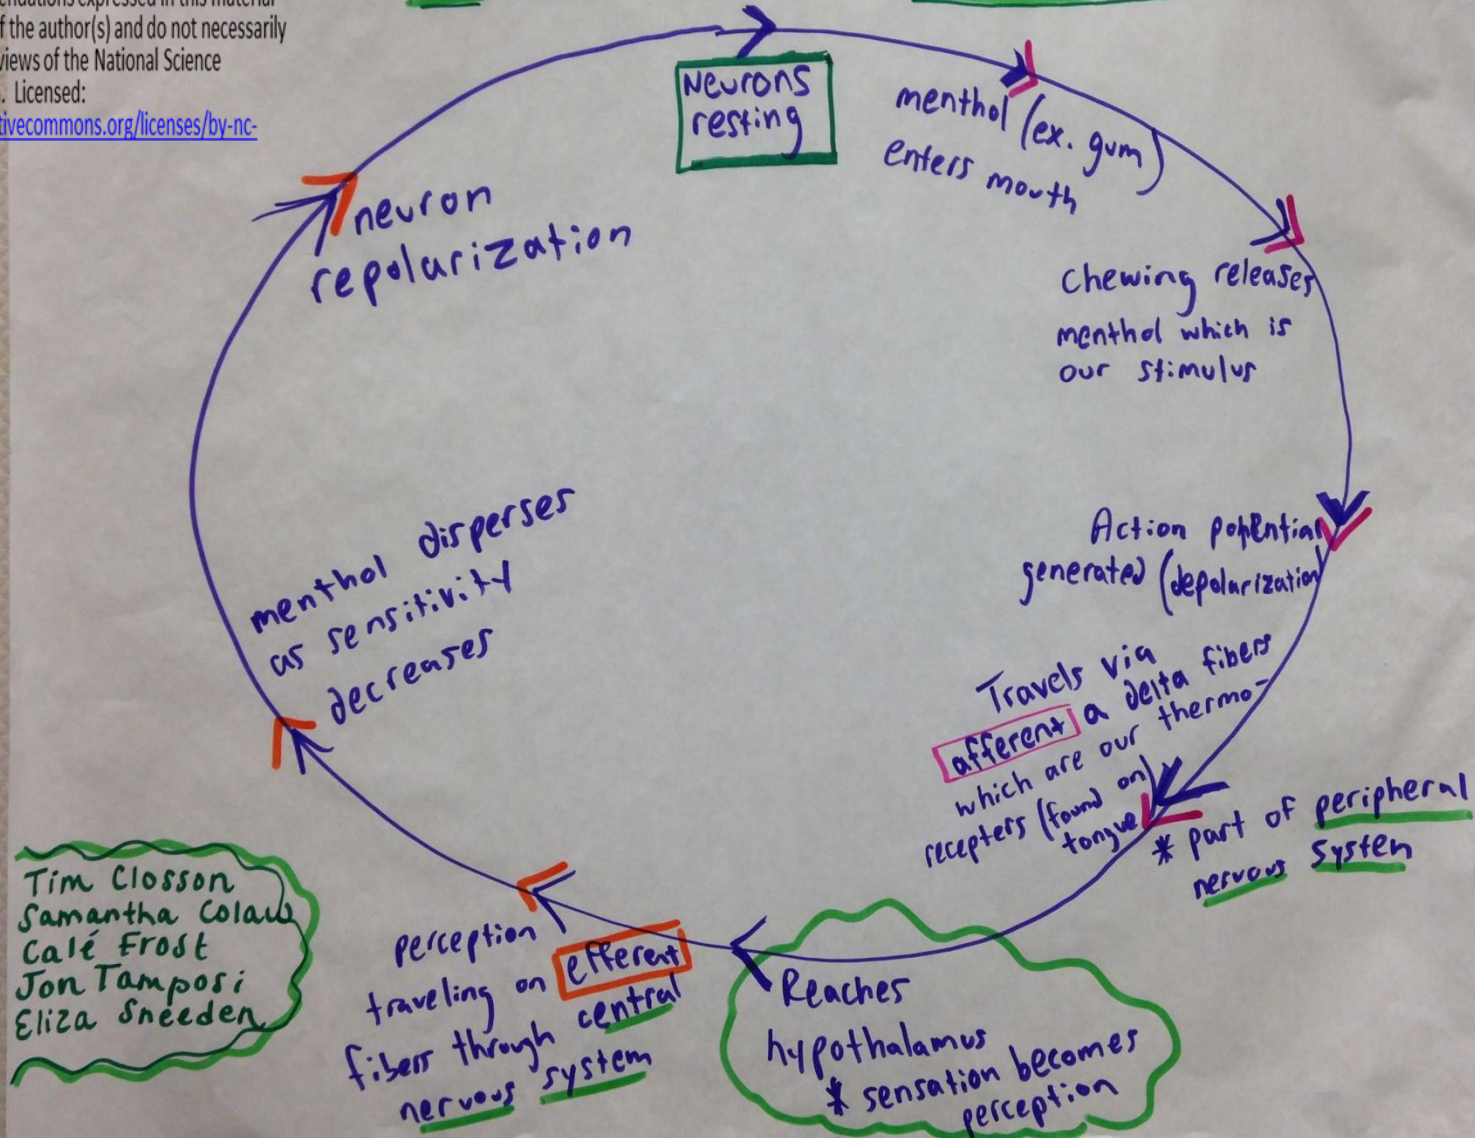 endations expressed in this material
f the author(s) and do not necessarily
views of the National Science
. Licensed:
tivecommons.org/licenses/by-nc-
Neurons
resting
menthol (ex. gum)
enters mouth
Chewing releases
menthol which is
our stimulus
Action potential
generated (depolarization)
Travels via
afferent a delta fibers
which are our thermo-
recepters (found on
tongue)
* part of peripheral
nervous system
Reaches
hypothalamus
* sensation becomes
perception
perception
traveling on efferent
fibers through central
nervous system
menthol disperses
as sensitivity
decreases
neuron
repolarization
Tim Closson
Samantha Colaw
Calé Frost
Jon Tamposi
Eliza Sneeden